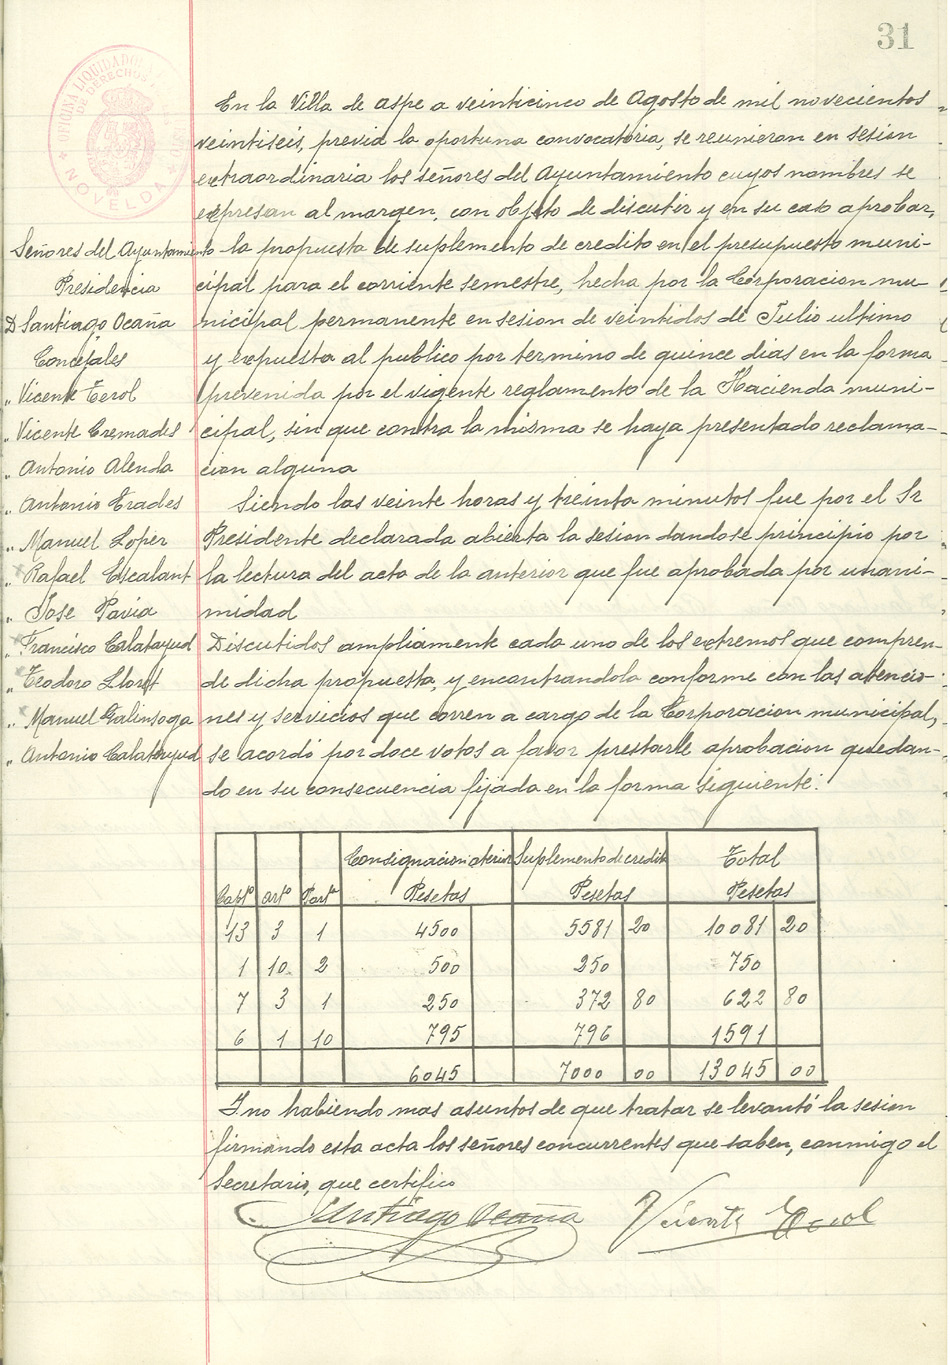 31
OFICINA LIQUIDADORA
DE DERECHOS
NOVELDA
En la Villa de aspe a veinticinco de Agosto de mil novecientos
veintiseis, previa la oportuna convocatoria, se reunieron en sesion
extraordinaria los señores del Ayuntamiento cuyos nombres se
expresan al margen, con objeto de discutir y en su caso aprobar,
Señores del Ayuntamiento
la propuesta de suplemento de credito en el presupuesto muni-
Presidencia
cipal para el corriente semestre, hecha por la Corporacion mu-
D Santiago Ocaña
nicipal permanente en sesion de veintidos de Julio ultimo
Concejales
y expuesta al publico por termino de quince dias en la forma
" Vicente Cerol
prevenida por el vigente reglamento de la Hacienda muni-
" Vicente Cremades
cipal, sin que contra la misma se haya presentado reclama-
" Antonio Alenda
cion alguna
" Antonio Prades
Siendo las veinte horas y treinta minutos fue por el Sr
" Manuel Lopez
Presidente declarada abierta la sesion dandose principio por
" Rafael Escalant
la lectura del acta de la anterior que fue aprobada por unani-
" Jose Pavia
midad
" Francisco Calatayud
Discutidos ampliamente cada uno de los extremos que compren-
" Teodoro Lloret
de dicha propuesta, y encontrandola conforme con las atencio-
" Manuel Galinsoga
nes y servicios que corren a cargo de la Corporacion municipal,
" Antonio Calatayud
se acordó por doce votos a favor prestarle aprobacion quedan-
do en su consecuencia fijada en la forma siguiente:
Consignacion aterior Suplemento de credito Total
Captº artº Partª Pesetas Pesetas Pesetas
13 3 1 4500 5581 20 10081 20
1 10 2 500 250 750
7 3 1 250 372 80 622 80
6 1 10 795 796 1591
6045 7000 00 13045 00
I no habiendo mas asuntos de que tratar se levantó la sesion
firmando esta acta los señores concurrentes que saben, conmigo el
Secretario, que certifico
Santiago Ocaña Vicente Cerol